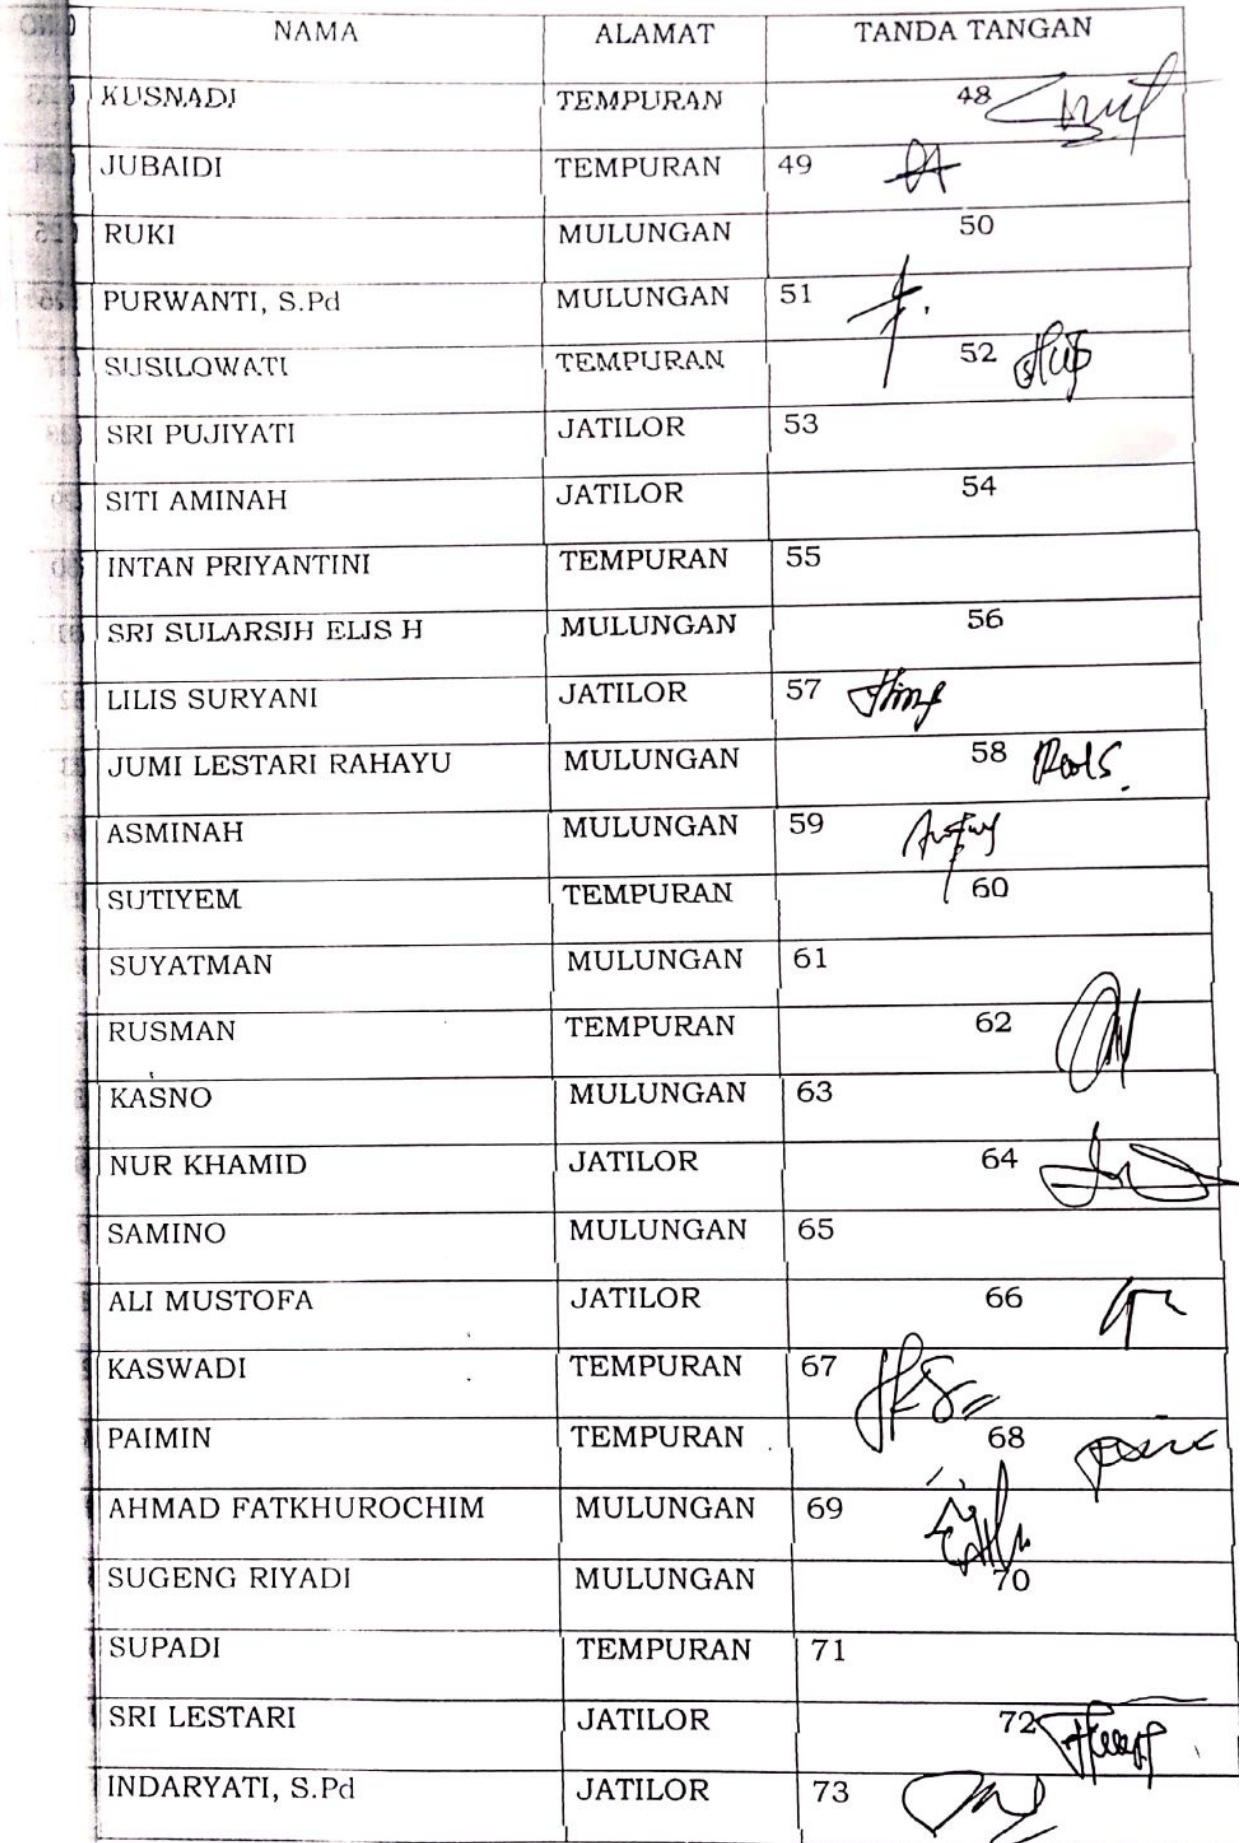 NO NAMA ALAMAT TANDA TANGAN
KUSNADI TEMPURAN 48
JUBAIDI TEMPURAN 49
RUKI MULUNGAN 50
PURWANTI, S.Pd MULUNGAN 51
SUSILOWATI TEMPURAN 52
SRI PUJIYATI JATILOR 53
SITI AMINAH JATILOR 54
INTAN PRIYANTINI TEMPURAN 55
SRI SULARSIH ELIS H MULUNGAN 56
LILIS SURYANI JATILOR 57
JUMI LESTARI RAHAYU MULUNGAN 58
ASMINAH MULUNGAN 59
SUTIYEM TEMPURAN 60
SUYATMAN MULUNGAN 61
RUSMAN TEMPURAN 62
KASNO MULUNGAN 63
NUR KHAMID JATILOR 64
SAMINO MULUNGAN 65
ALI MUSTOFA JATILOR 66
KASWADI TEMPURAN 67
PAIMIN TEMPURAN 68
AHMAD FATKHUROCHIM MULUNGAN 69
SUGENG RIYADI MULUNGAN 70
SUPADI TEMPURAN 71
SRI LESTARI JATILOR 72
INDARYATI, S.Pd JATILOR 73